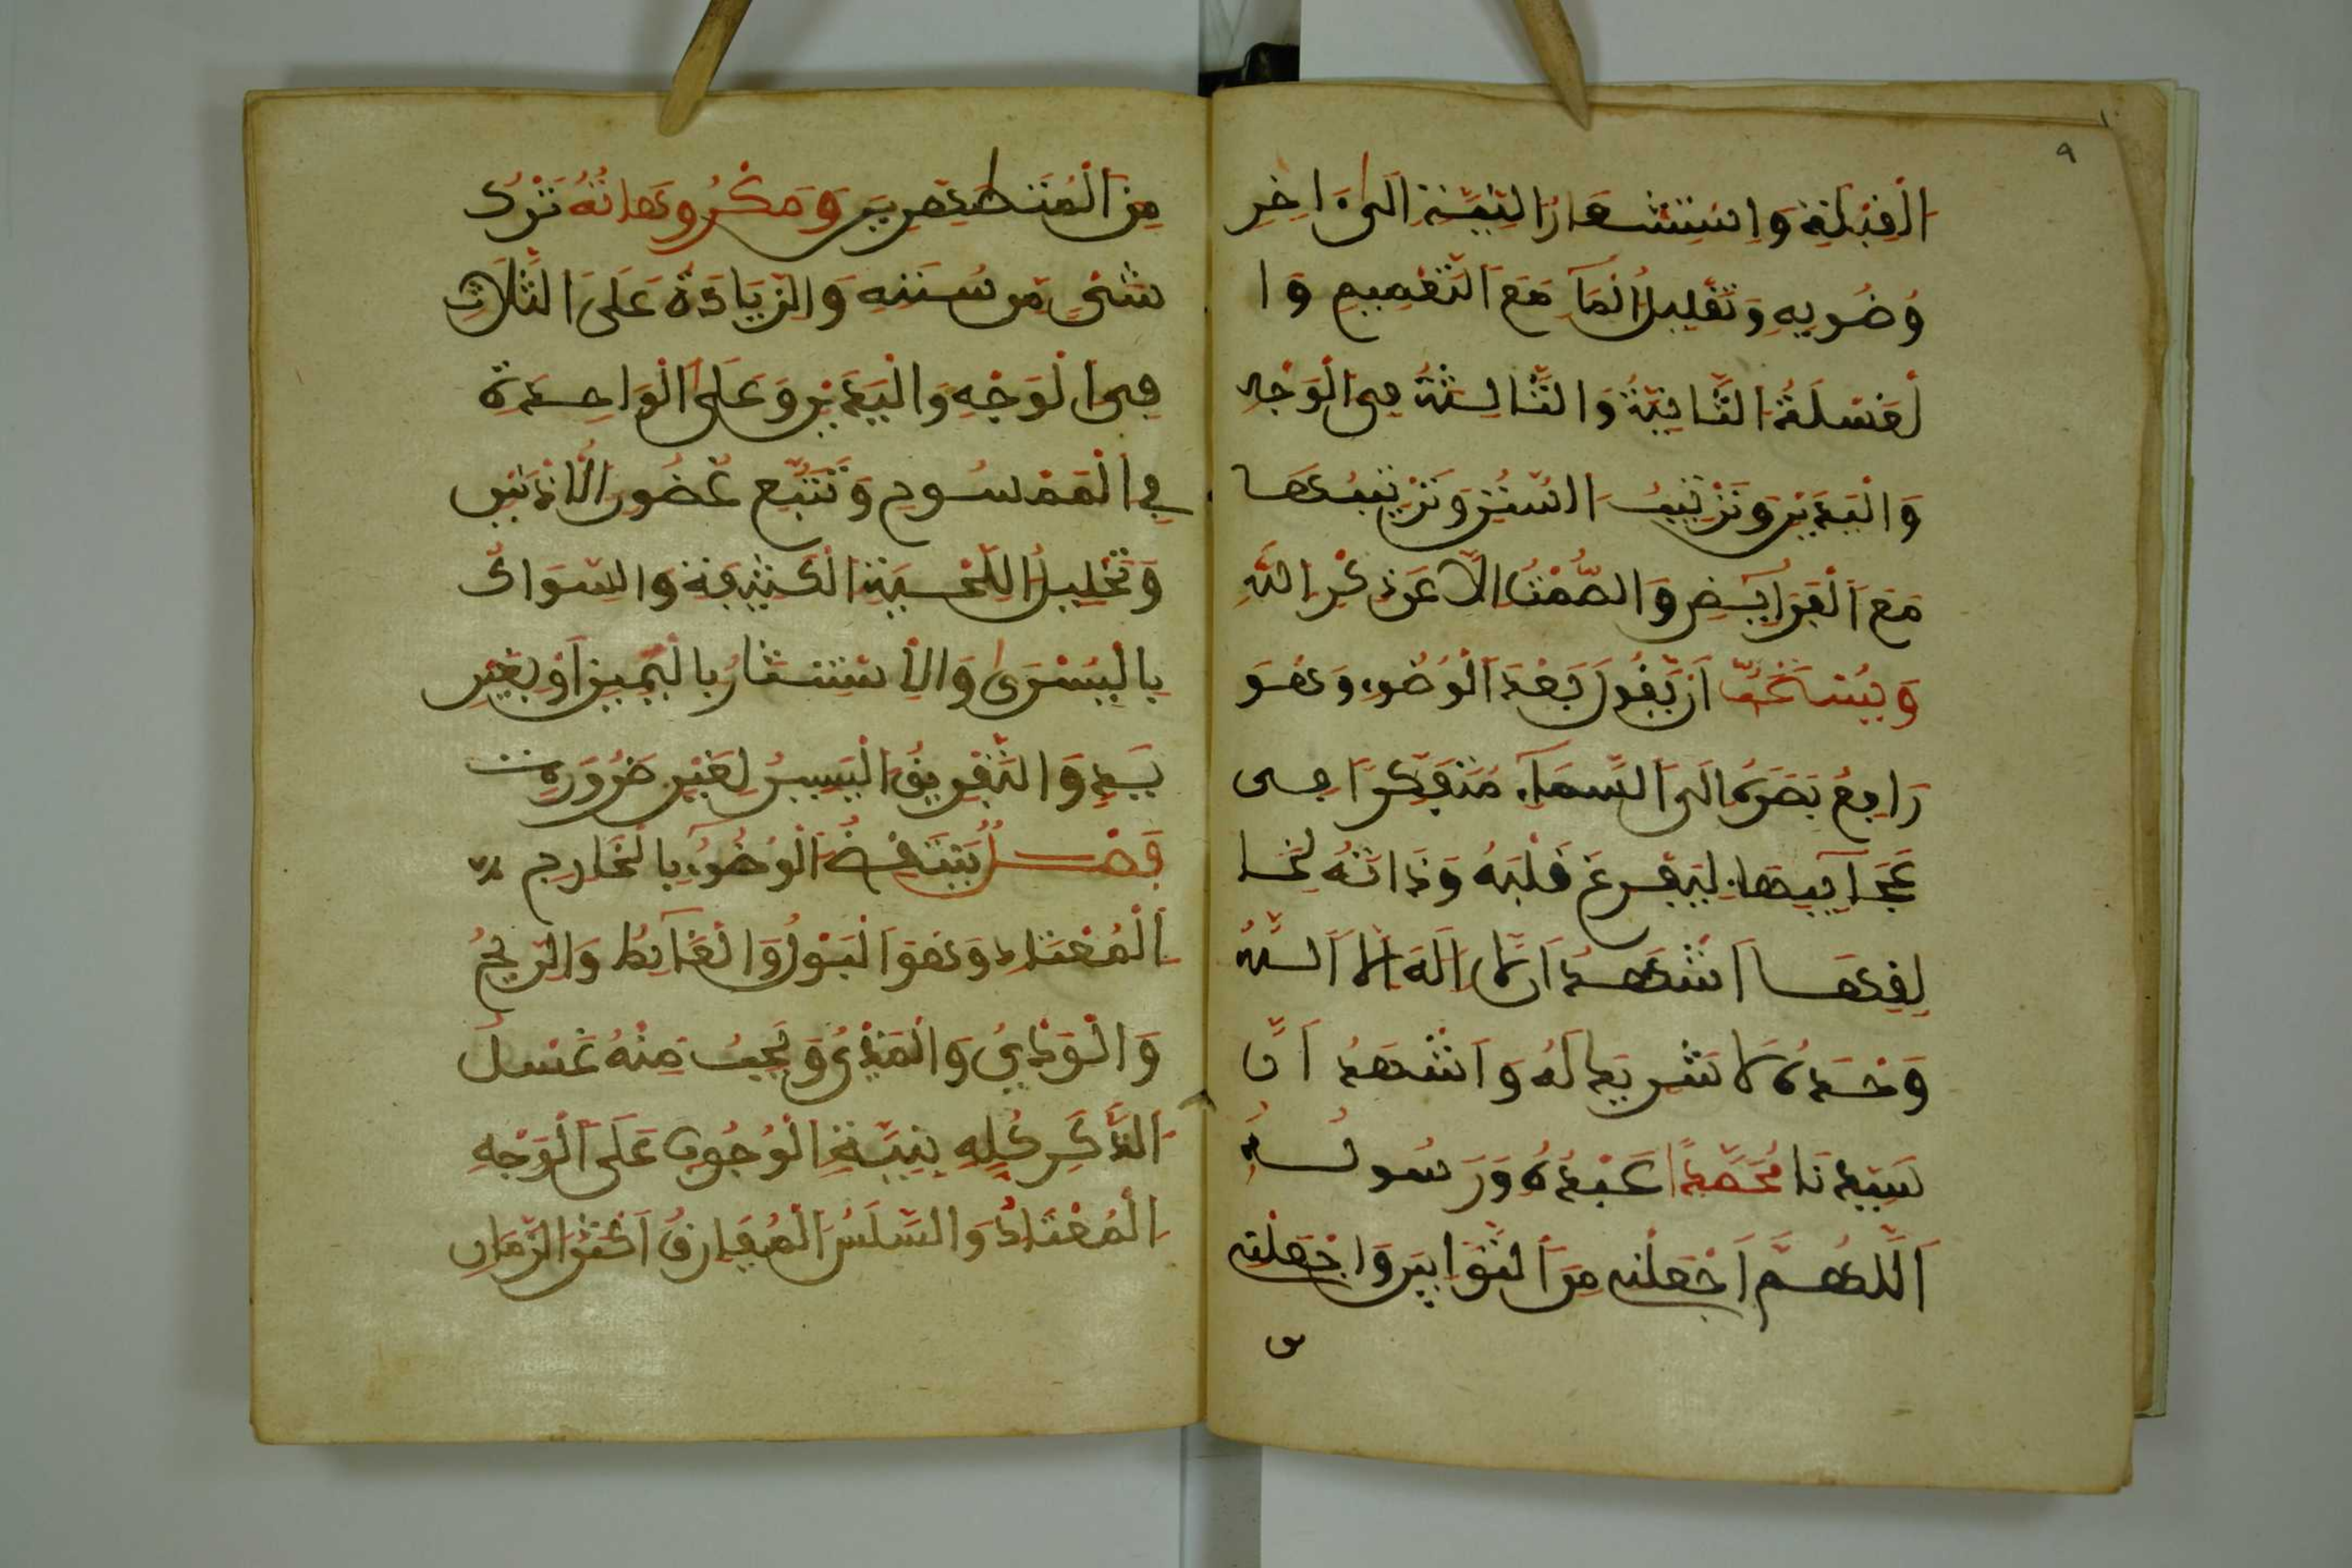 ٩
الْقِبْلَةِ وَاسْتِشْعَارُ النِّيَّةِ اِلَىٰ ءَاخِرِ
وُضُوئِهِ وَتَقْلِيلُ الْمَآءِ مَعَ التَّعْمِيمِ وَا
لْغَسْلَةُ الثَّانِيَةُ وَالثَّالِثَةُ فِى الْوَجْهِ
وَالْيَدَيْنِ وَتَرْتِيبُ السُّنَنِ وَتَرْتِيبُهَا
مَعَ الْفَرَآيِضِ وَالصَّمْتُ اِلَّا عَن ذِكْرِ اللَّهِ
وَيُسْتَحَبُّ اَن يَّقُولَ بَعْدَ الْوُضُوءِ وَهُوَ
رَافِعٌ بَصَرَهُ اِلَى السَّمَآءِ مُتَفَكِّرًا فِى
عَجَآيِبِهَا لِيُفَرِّغَ قَلْبَهُ وَذَاتَهُ لِخَا
لِقِهَا اَشْهَدُ اَن لَّا اِلَهَ اِلَّا اللَّهُ
وَحْدَهُ لَا شَرِيكَ لَهُ وَاَشْهَدُ اَنَّ
سَيِّدَنَا مُحَمَّدًا عَبْدُهُ وَرَسُولُهُ
اَللَّهُمَّ اَجْعَلْنِى مِنَ التَّوَّابِينَ وَاجْعَلْنِى
من
مِنَ الْمُتَطَهِّرِينَ وَمَكْرُوهَاتُهُ تَرْكُ
شَىْءٍ مِّن سُنَنِهِ وَالزِّيَادَةُ عَلَى الثَّلَاثِ
فِى الْوَجْهِ وَالْيَدَيْنِ وَعَلَى الْوَاحِدَةِ
فِي الْمَمْسُوحِ وَتَتَبُّعُ غُضُونِ الْاُذْنَيْنِ
وَتَخْلِيلُ اللِّحْيَةِ الْكَثِيفَةِ وَالسِّوَاكُ
بِالْيُسْرَىٰ وَالِاسْتِنْثَارُ بِالْيَمِينِ اَوْ بِغَيْرِ
يَدٍ وَالتَّفْرِيقُ الْيَسِيرُ لِغَيْرِ ضَرُورَةٍ
فَصْلٌ يَنْتَقِضُ الْوُضُوءُ بِالْخَارِجِ
الْمُعْتَادِ وَهُوَ الْبَوْلُ وَالْغَآيِطُ وَالرِّيحُ
وَالْوَدْيُ وَالْمَذْيُ وَيَجِبُ مِنْهُ غَسْلُ
الذَّكَرِ كُلِّهِ بِنِيَّةِ الْوُجُوبِ عَلَى الْوَجْهِ
الْمُعْتَادِ وَالسَّلَسُ الْمُفَارِقُ اَكْثَرَ الزَّمَانِ